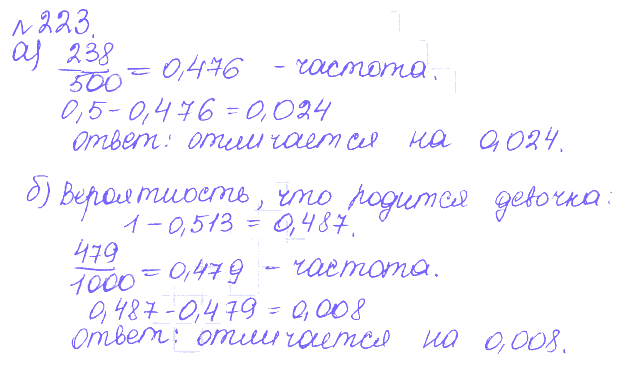 №223.
а) 238/500 = 0,476 - частота.
0,5-0,476=0,024
Ответ: отличается на 0,024.
б) Вероятность, что родится девочка:
1-0,513=0,487.
479/1000=0,479 - частота.
0,487-0,479=0,008
Ответ: отличается на 0,008.